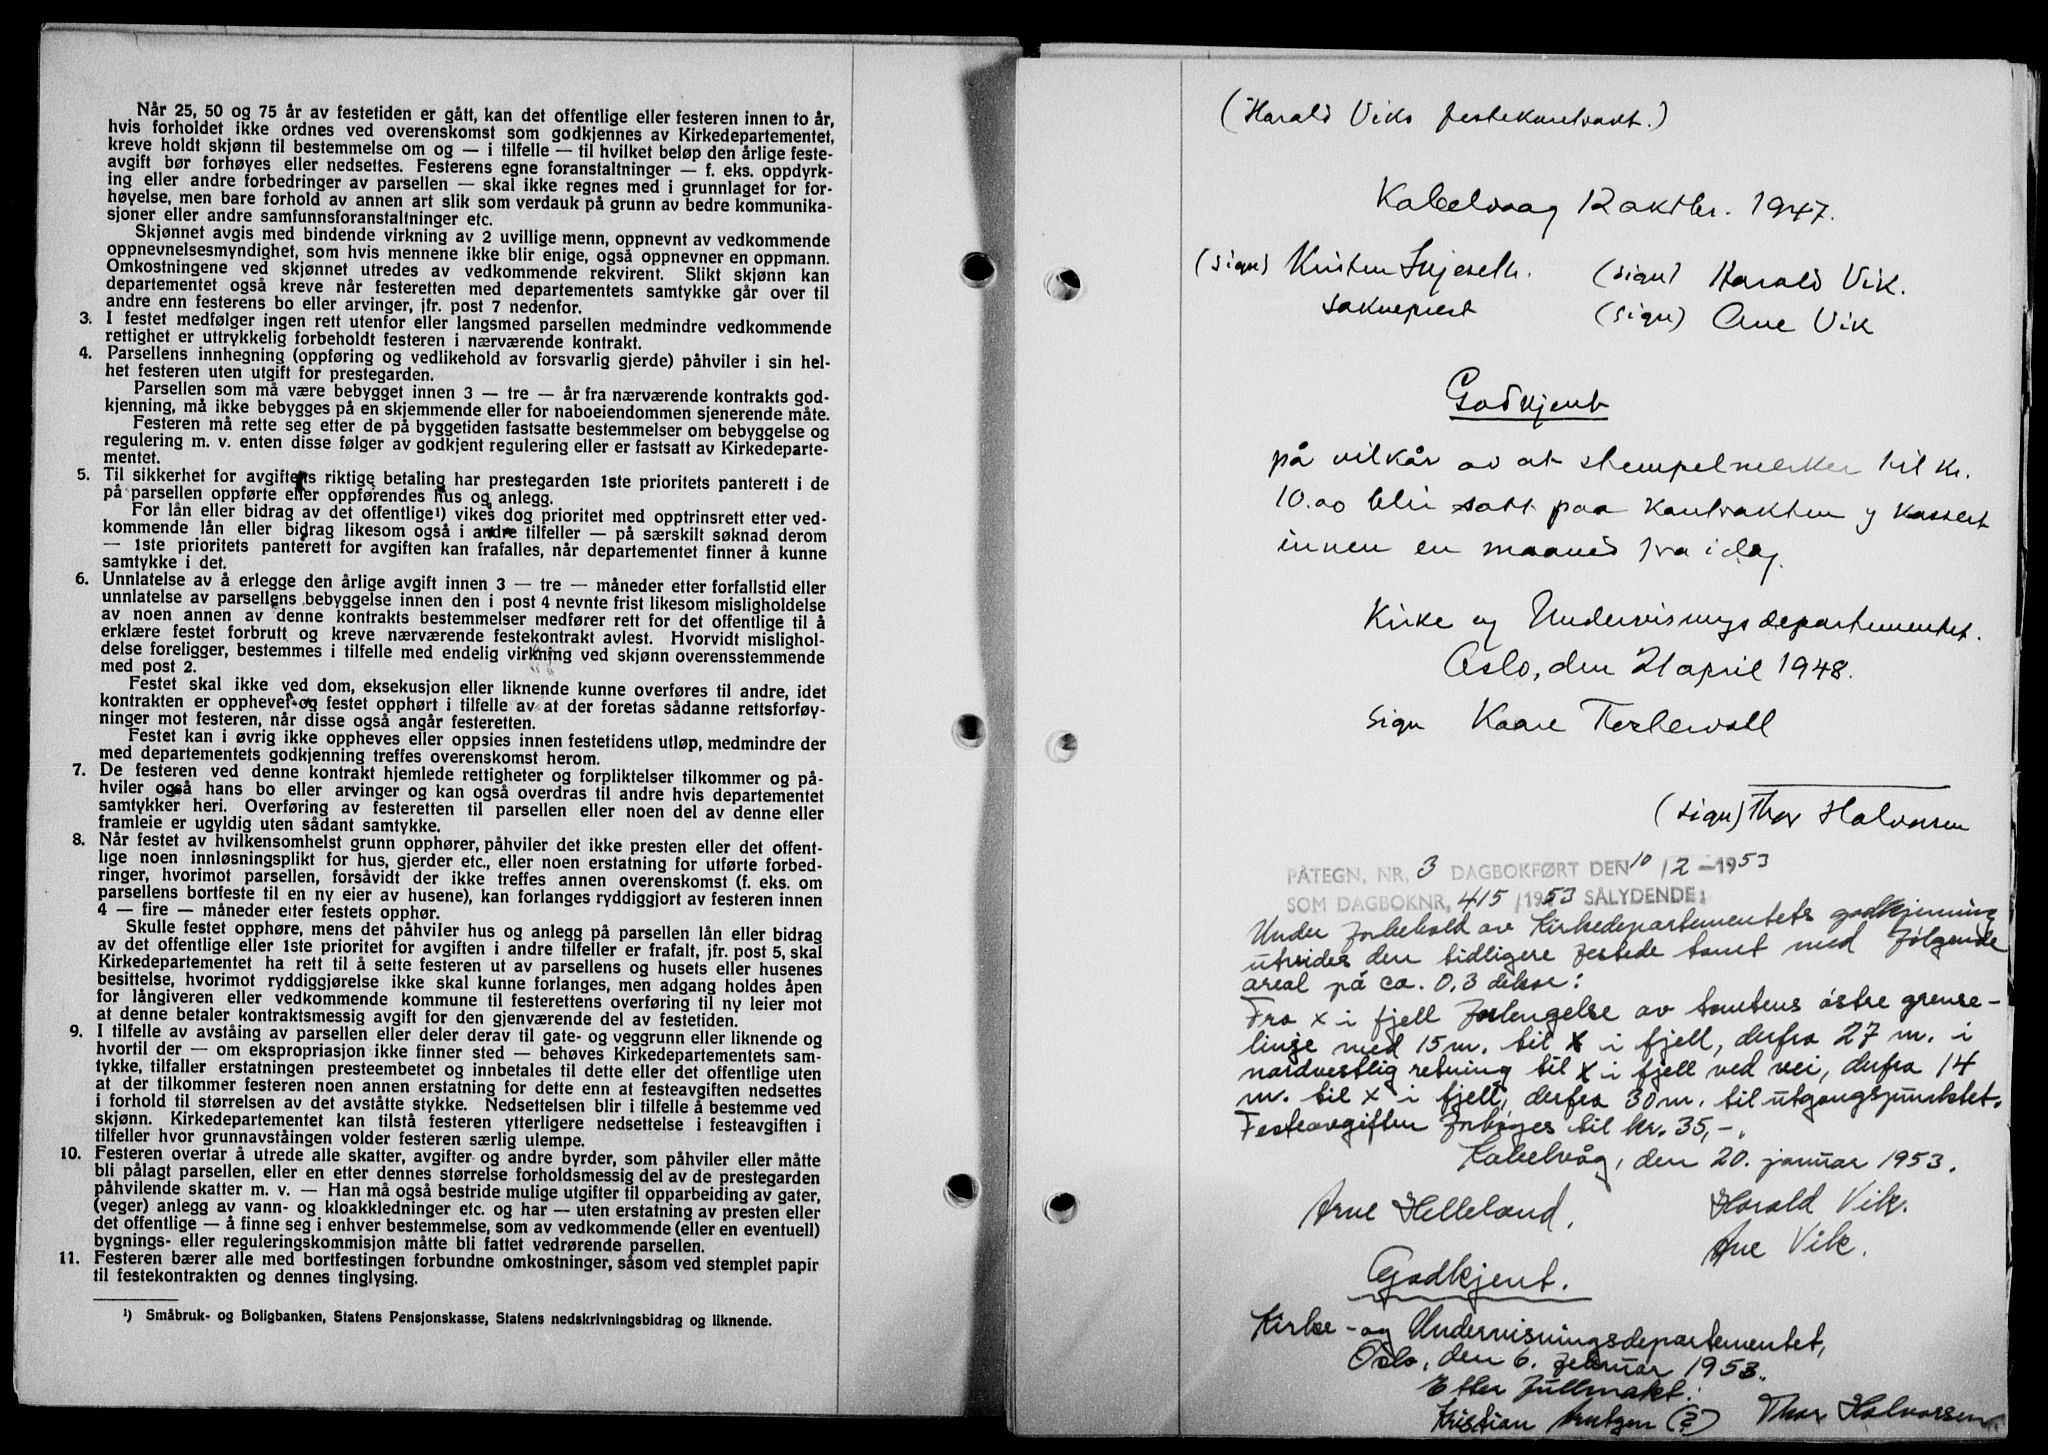 Når 25, 50 og 75 år av festetiden er gått, kan det offentlige eller festeren innen to år,
hvis forholdet ikke ordnes ved overenskomst som godkjennes av Kirkedepartementet,
kreve holdt skjønn til bestemmelse om og — i tilfelle — til hvilket beløp den årlige feste-
avgift bør forhøyes eller nedsettes. Festerens egne foranstaltninger — f. eks. oppdyrk-
ing eller andre forbedringer av parsellen — skal ikke regnes med i grunnlaget for for-
høyelse, men bare forhold av annen art slik som verdauk på grunn av bedre kommunika-
sjoner eller andre samfunnsforanstaltninger etc.
Skjønnet avgis med bindende virkning av 2 uvillige menn, oppnevnt av vedkommende
oppnevnelsesmyndighet, som hvis mennene ikke blir enige, også oppnevner en oppmann.
Omkostningene ved skjønnet utredes av vedkommende rekvirent. Slikt skjønn kan
departementet også kreve når festeretten med departementets samtykke går over til
andre enn festerens bo eller arvinger, jfr. post 7 nedenfor.
3. I festet medfølger ingen rett utenfor eller langsmed parsellen medmindre vedkommende
rettighet er uttrykkelig forbeholdt festeren i nærværende kontrakt.
4. Parsellens innhegning (oppføring og vedlikehold av forsvarlig gjerde) påhviler i sin hel-
het festeren uten utgift for prestegarden.
Parsellen som må være bebygget innen 3 — tre — år fra nærværende kontrakts god-
kjenning, må ikke bebygges på en skjemmende eller for naboeiendommen sjenerende måte.
Festeren må rette seg etter de på byggetiden fastsatte bestemmelser om bebyggelse og
regulering m. v. enten disse følger av godkjent regulering eller er fastsatt av Kirkedeparte-
mentet.
5. Til sikkerhet for avgiftens riktige betaling har prestegarden 1ste prioritets panterett i de
på parsellen oppførte eller oppførendes hus og anlegg.
For lån eller bidrag av det offentlige¹) vikes dog prioritet med opptrinsrett etter ved-
kommende lån eller bidrag likesom også i andre tilfeller — på særskilt søknad derom
— 1ste prioritets panterett for avgiften kan frafalles, når departementet finner å kunne
samtykke i det.
6. Unnlatelse av å erlegge den årlige avgift innen 3 — tre — måneder etter forfallstid eller
unnlatelse av parsellens bebyggelse innen den i post 4 nevnte frist likesom misligholdelse
av noen annen av denne kontrakts bestemmelser medfører rett for det offentlige til å
erklære festet forbrutt og kreve nærværende festekontrakt avlest. Hvorvidt misligho-
delse foreligger, bestemmes i tilfelle med endelig virkning ved skjønn overensstemmende
med post 2.
Festet skal ikke ved dom, eksekusjon eller liknende kunne overføres til andre, idet
kontrakten er opphevet og festet opphørt i tilfelle av at der foretas sådanne rettsforføy-
ninger mot festeren, når disse også angår festeretten.
Festet kan i øvrig ikke oppheves eller oppsies innen festetidens utløp, medmindre der
med departementets godkjenning treffes overenskomst herom.
7. De festeren ved denne kontrakt hjemlede rettigheter og forpliktelser tilkommer og på-
hviler også hans bo eller arvinger og kan også overdras til andre hvis departementet
samtykker heri. Overføring av festeretten til parsellen eller noen del av denne eller
framleie er ugyldig uten sådant samtykke.
8. Når festet av hvilkensomhelst grunn opphører, påhviler det ikke presten eller det offent-
lige noen innløsningsplikt for hus, gjerder etc., eller noen erstatning for utførte forbed-
ringer, hvorimot parsellen, forsåvidt der ikke treffes annen overenskomst (f. eks. om
parsellens bortfeste til en ny eier av husene), kan forlanges ryddiggjort av festeren innen
4 — fire — måneder etter festets opphør.
Skulle festet opphøre, mens det påhviler hus og anlegg på parsellen lån eller bidrag
av det offentlige eller 1ste prioritet for avgiften i andre tilfeller er frafalt, jfr. post 5, skal
Kirkedepartementet ha rett til å sette festeren ut av parsellens og husets eller husenes
besittelse, hvorimot ryddiggjørelse ikke skal kunne forlanges, men adgang holdes åpen
for långiveren eller vedkommende kommune til festerettens overføring til ny leier mot
at denne betaler kontraktsmessig avgift for den gjenværende del av festetiden.
9. I tilfelle av avståing av parsellen eller deler derav til gate- og veggrunn eller liknende og
hvortil der — om ekspropriasjon ikke finner sted — behøves Kirkedepartementets sam-
tykke, tilfaller erstatningen presteembetet og innbetales til dette eller det offentlige uten
at der tilkommer festeren noen annen erstatning for dette enn at festeavgiften nedsettes
i forhold til størrelsen av det avståtte stykke. Nedsettelsen blir i tilfelle å bestemme ved
skjønn. Kirkedepartementet kan tilstå festeren ytterligere nedsettelse i festeavgiften i
tilfeller hvor grunnavståingen volder festeren særlig ulempe.
10. Festeren overtar å utrede alle skatter, avgifter og andre byrder, som påhviler eller måtte
bli pålagt parsellen, eller en etter dennes størrelse forholdsmessig del av de prestegarden
påhvilende skatter m. v. — Han må også bestride mulige utgifter til opparbeiding av gater,
(veger) anlegg av vann- og kloakkledninger etc. og har — uten erstatning av presten eller
det offentlige — å finne seg i enhver bestemmelse, som av vedkommende (eller en eventuell)
bygnings- eller reguleringskommisjon måtte bli fattet vedrørende parsellen.
11. Festeren bærer alle med bortfestingen forbundne omkostninger, såsom ved stemplet papir
til festekontrakten og dennes tinglysing.
¹) Småbruk- og Boligbanken, Statens Pensjonskasse, Statens nedskrivningsbidrag og liknende.
(Harald Viks festekontrakt.)
Kabelvaag 12 oktbr. 1947.
(sign) Kristen Skjeseth. (sign) Harald Vik.
sokneprest (sign) Ane Vik
Godkjent
på vilkår av at stempelmerker til kr.
10.00 blir satt paa kontrakten og kassert
innen en maaned fra idag.
Kirke og Undervisningsdepartementet.
Oslo, den 21 april 1948.
sign Kaare
(sign) Thor Halvorsen
PÅTEGN. NR. 3 DAGBOKFØRT DEN 10/2-1953
SOM DAGBOKNR. 415/1953 SÅLYDENDE:
Under forbehold av Kirkedepartementets godkjenning
utvides den tidligere festede tomt med følgende
areal på ca. 0,3 dekar:
Fra x i fjell forlengelse av tomtens østre grense-
linje med 15 m. til x i fjell, derfra 27 m. i
nordvestlig retning til x i fjell ved vei, derfra 14
m. til x i fjell, derfra 30 m. til utgangspunktet.
Festeavgiften forhøyes til kr. 35,-.
Kabelvåg, den 20. januar 1953.
Arne Helleland. Harald Vik.
Ane Vik.
Godkjent.
Kirke- og Undervisningsdepartementet,
Oslo, den 6. februar 1953.
Etter fullmakt:
Kristian (?) Thor Halvorsen.